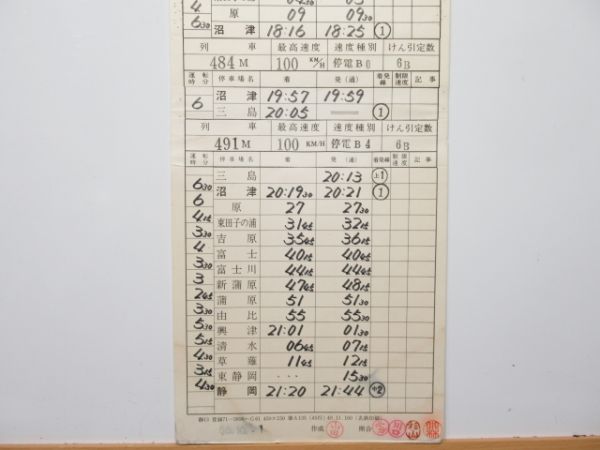 4 05
原 09 09 30
6 30 沼津 18:16 18:25 ①
列車 最高速度 速度種別 けん引定数
484M 100 KM/H 停電B6 6B
運転時分 停車場名 着 発(通) 着発線 制限速度 記事
6 沼津 19:57 19:59
三島 20:05 ①
列車 最高速度 速度種別 けん引定数
491M 100 KM/H 停電B4 6B
運転時分 停車場名 着 発(通) 着発線 制限速度 記事
三島 20:13 上1
6 30 沼津 20:19 30 20:21 ①
6 原 27 27 30
4 15 東田子の浦 31 45 32 15
3 30 吉原 35 45 36 15
4 富士 40 15 40 45
3 30 富士川 44 15 44 45
3 新蒲原 47 45 48 15
2 45 蒲原 51 51 30
3 30 由比 55 55 30
5 30 興津 21:01 01 30
5 15 清水 06 45 07 15
4 30 草薙 11 45 12 15
3 15 東静岡 ... 15 30
4 30 静岡 21:20 21:44
作成 照合